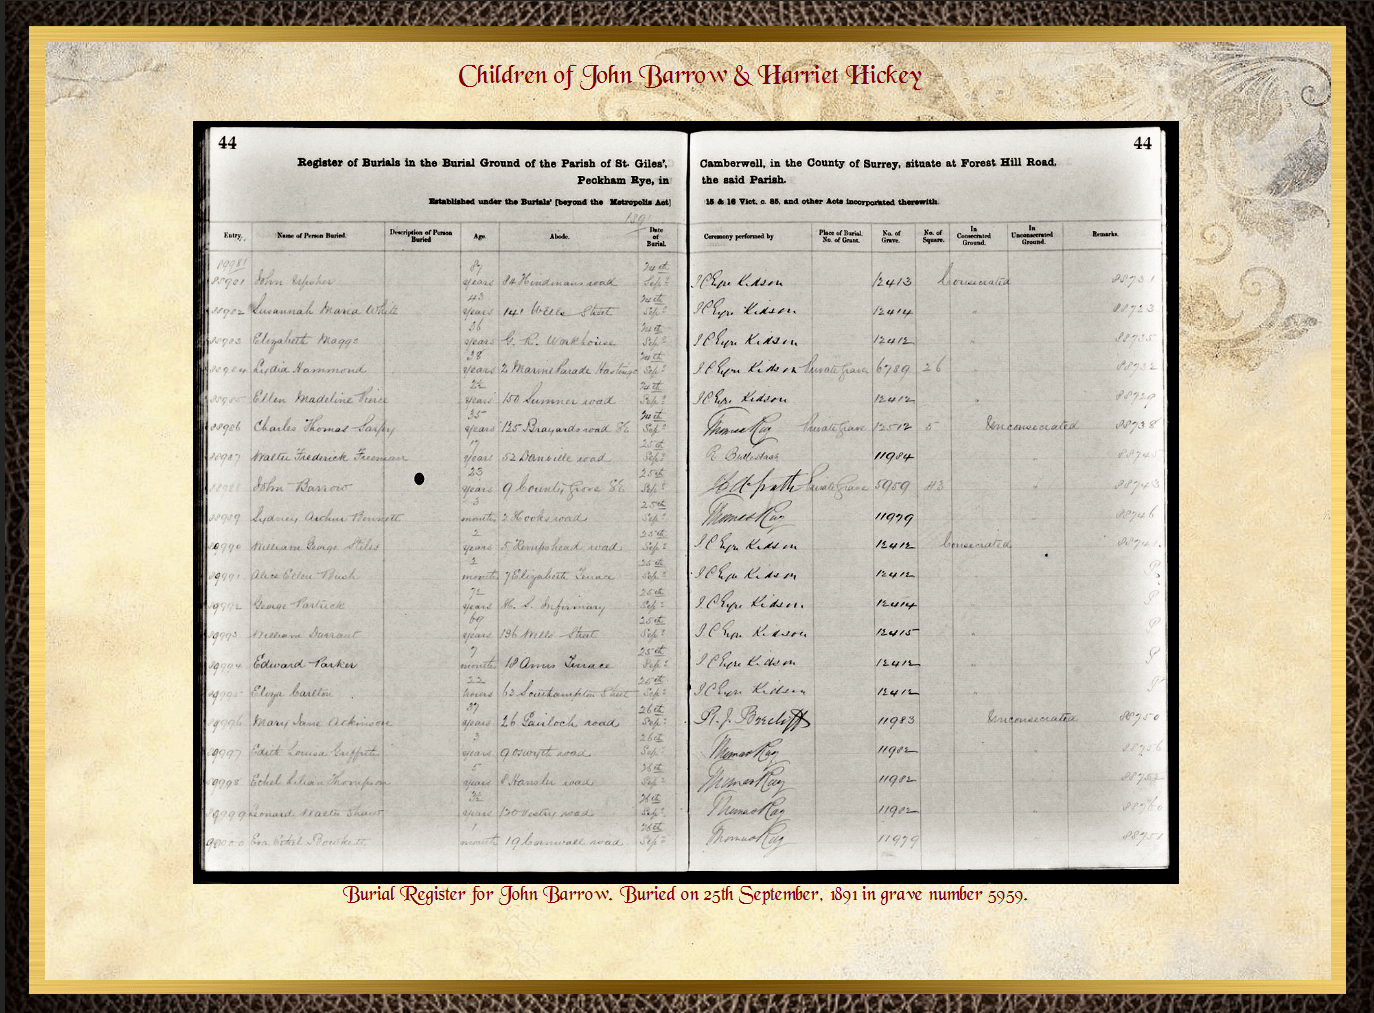 Children of John Barrow & Harriet Hickey
44 44
Register of Burials in the Burial Ground of the Parish of St. Giles', Camberwell, in the County of Surrey, situate at Forest Hill Road,
Peckham Rye, in the said Parish.
Established under the Burials' [beyond the Metropolis Act] 15 & 16 Vict. c. 85, and other Acts incorporated therewith.
1891
Entry. Name of Person Buried. Description of Person Buried Age. Abode. Date of Burial. Ceremony performed by Place of Burial. No. of Grant. No. of Grave. No. of Square. In Consecrated Ground. In Unconsecrated Ground. Remarks.
John 87 years 84 Hindmans road 24th Sept Kidson 12413 Consecrated
Susannah Maria White 43 years 141 Wells Street 24th Sept Kidson 12414
Elizabeth Maggs 36 years Workhouse 24th Sept Kidson 12412
Lydia Hammond 28 years 2 Marine Parade Hastings 24th Sept Kidson Private Grave 6789 26
Ellen Madeline Pierce years 150 Sumner road 24th Sept Kidson 12412
Charles Thomas 35 years 125 Brayards road 24th Sept Thomas Ray Private Grave 12512 5 Unconsecrated
Walter Frederick Freeman 17 years 52 Danville road 25th Sept 11984
John Barrow 23 years 9 County Grove 25th Sept Private Grave 5959 43
Sydney Arthur Bennett 3 months 2 Hooks road 25th Sept Thomas Ray 11979
William George Stiles 2 years 5 Kempshead road 25th Sept Kidson 12412 Consecrated
Alice Ellen Bush 2 months 7 Elizabeth Terrace 25th Sept Kidson 12412
George Partrick 72 years Infirmary 25th Sept Kidson 12414
William Durrant 69 years 136 Wells Street 25th Sept Kidson 12415
Edward Parker 7 months 18 Amos Terrace 25th Sept Kidson 12412
Eliza Carlton 22 hours 63 Southampton Street 26th Sept Kidson 12412
Mary Jane Atkinson 37 years 26 Gairloch road 26th Sept 11983 Unconsecrated 88750
Edith Louisa Griffith 3 years 9 Oswyth road 26th Sept Thomas Ray 11982
Ethel Lilian Thompson 5 years 8 Hansler road 26th Sept Thomas Ray 11982
Leonard Martin Shaw years 130 Vestry road 26th Sept Thomas Ray 11982
Eva Ethel 1 month 19 Cornwall road 26th Sept Thomas Ray 11979
Burial Register for John Barrow. Buried on 25th September, 1891 in grave number 5959.